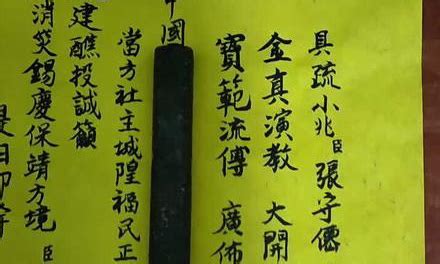 具疏小兆臣張守儒
金真演教 大開
寶範流傳 廣佈
中國
當方社主城隍福民正
建醮投誠籲
消災錫慶保靖方境 臣